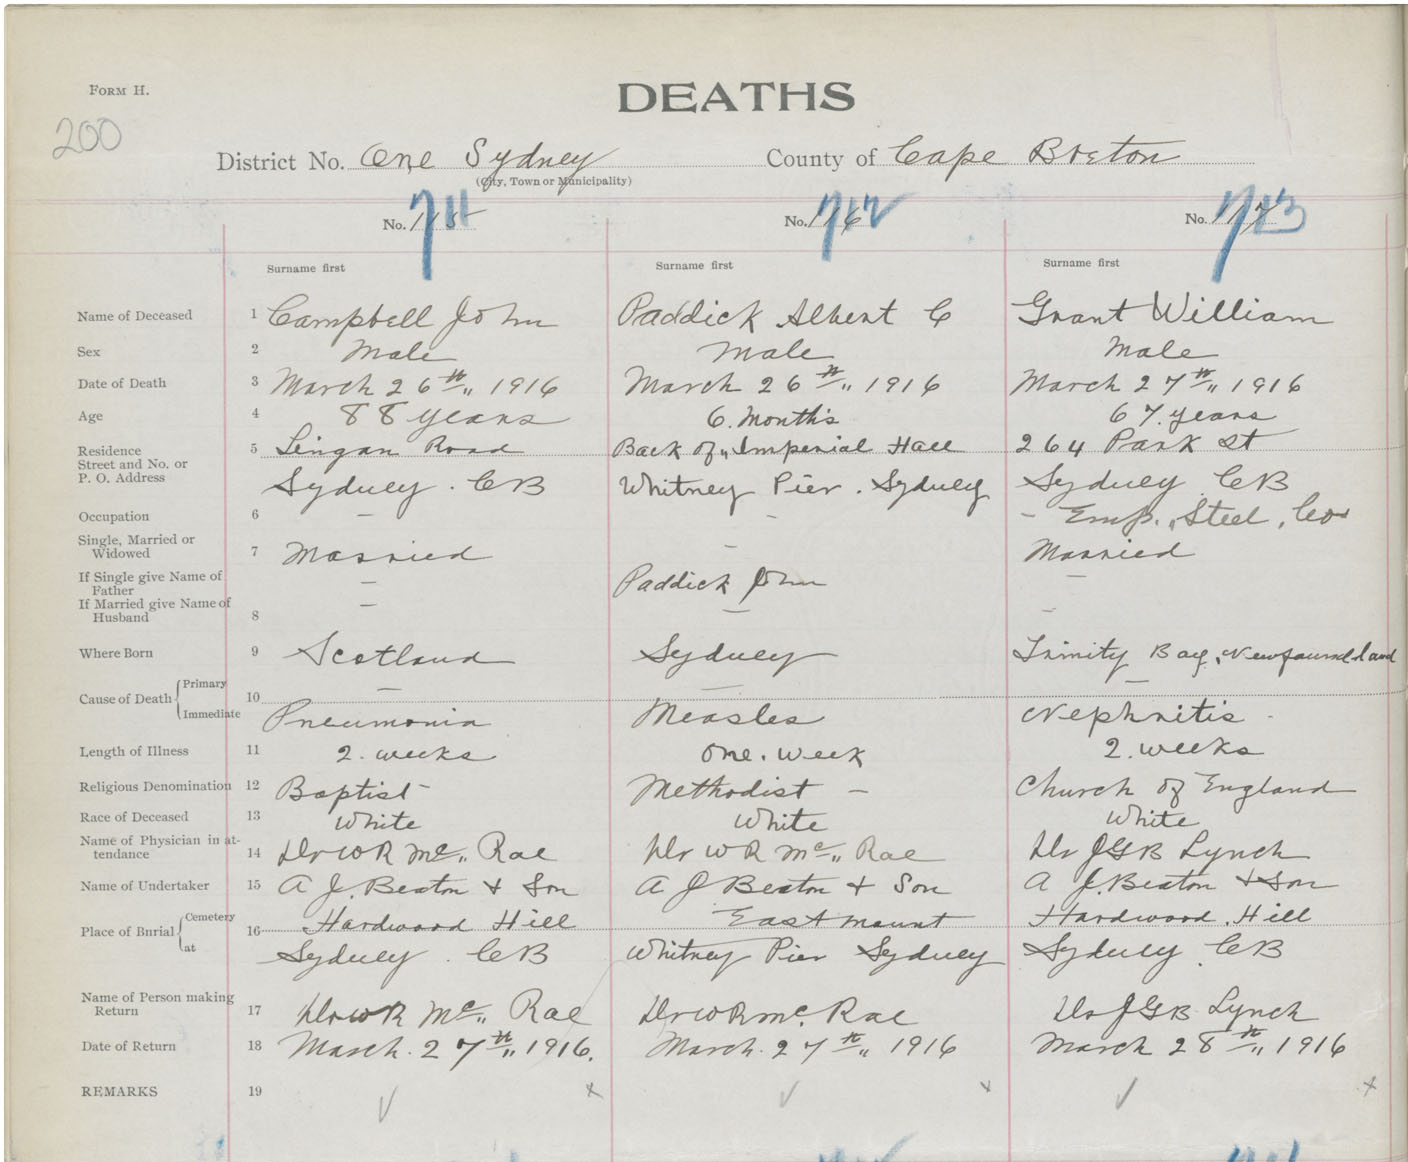 FORM H.
DEATHS
200
District No. One Sydney County of Cape Breton
(City, Town or Municipality)
No. 115 711 No. 116 712 No. 117 713
Surname first Surname first Surname first
Name of Deceased 1 Campbell John Paddick Albert C Grant William
Sex 2 Male Male Male
Date of Death 3 March 26th,, 1916 March 26th,, 1916 March 27th,, 1916
Age 4 88 years 6. Months 67. years
Residence 5 Lingan Road Back of,, Imperial Hall 264 Park St
Street and No. or
P. O. Address Sydney. CB Whitney Pier. Sydney Sydney CB
Occupation 6 - - - Emp. Steel, Co
Single, Married or
Widowed 7 Married - Married
If Single give Name of
Father - Paddick John -
If Married give Name of
Husband 8 - - -
Where Born 9 Scotland Sydney Trinity Bay, Newfoundland
Cause of Death { Primary 10 - - -
Immediate Pneumonia Measles Nephritis
Length of Illness 11 2. weeks one. week 2. weeks
Religious Denomination 12 Baptist - Methodist - Church of England
Race of Deceased 13 White White White
Name of Physician in at-
tendance 14 Dr W R Mc,, Rae Dr W R Mc,, Rae Dr J G B Lynch
Name of Undertaker 15 A J. Beaton & Son A J Beaton & Son A J. Beaton & Son
Place of Burial { Cemetery 16 Hardwood Hill Eastmount Hardwood. Hill
at Sydney. CB Whitney Pier Sydney Sydney CB
Name of Person making
Return 17 Dr W R Mc,, Rae Dr W R Mc. Rae Dr J G B Lynch
Date of Return 18 March. 27th,, 1916. March. 27th,, 1916 March 28th,, 1916
REMARKS 19 ✓ x ✓ x ✓ x